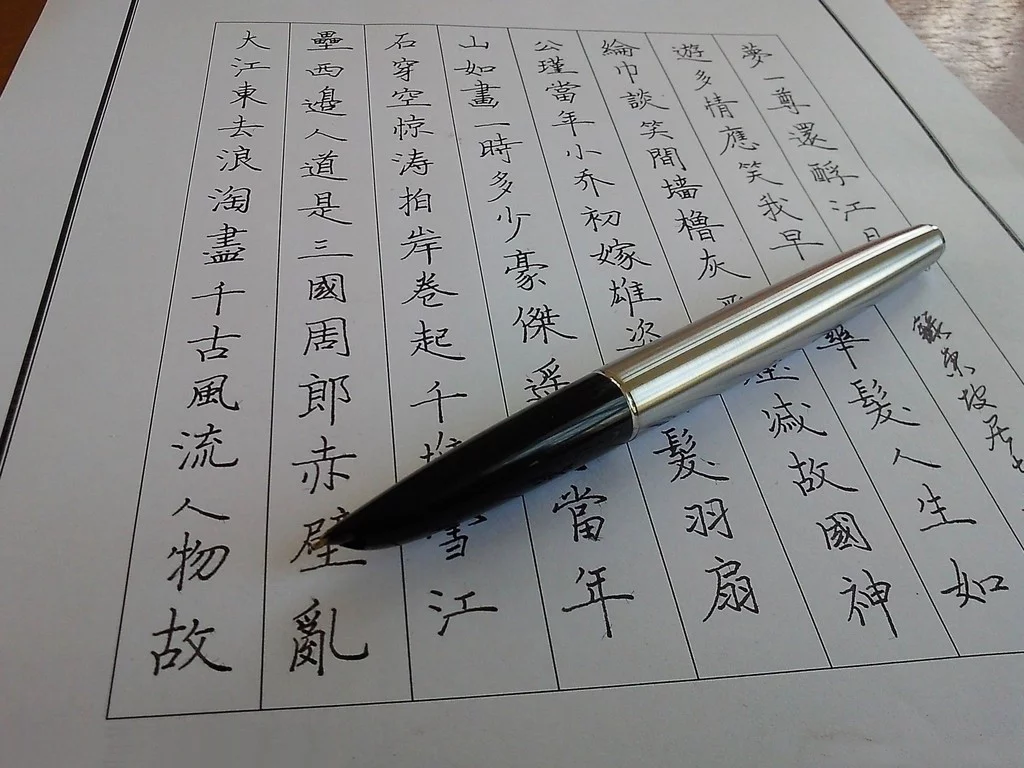 大江東去浪淘盡千古風流人物故
壘西邉人道是三國周郎赤壁亂
石穿空惊涛拍岸卷起千堆雪江
山如畫一時多少豪傑遥當年
公瑾當年小乔初嫁雄姿髮羽扇
綸巾談笑間墙櫓灰减故國神
遊多情應笑我早華髮人生如
夢一尊還酹江月
東坡居士